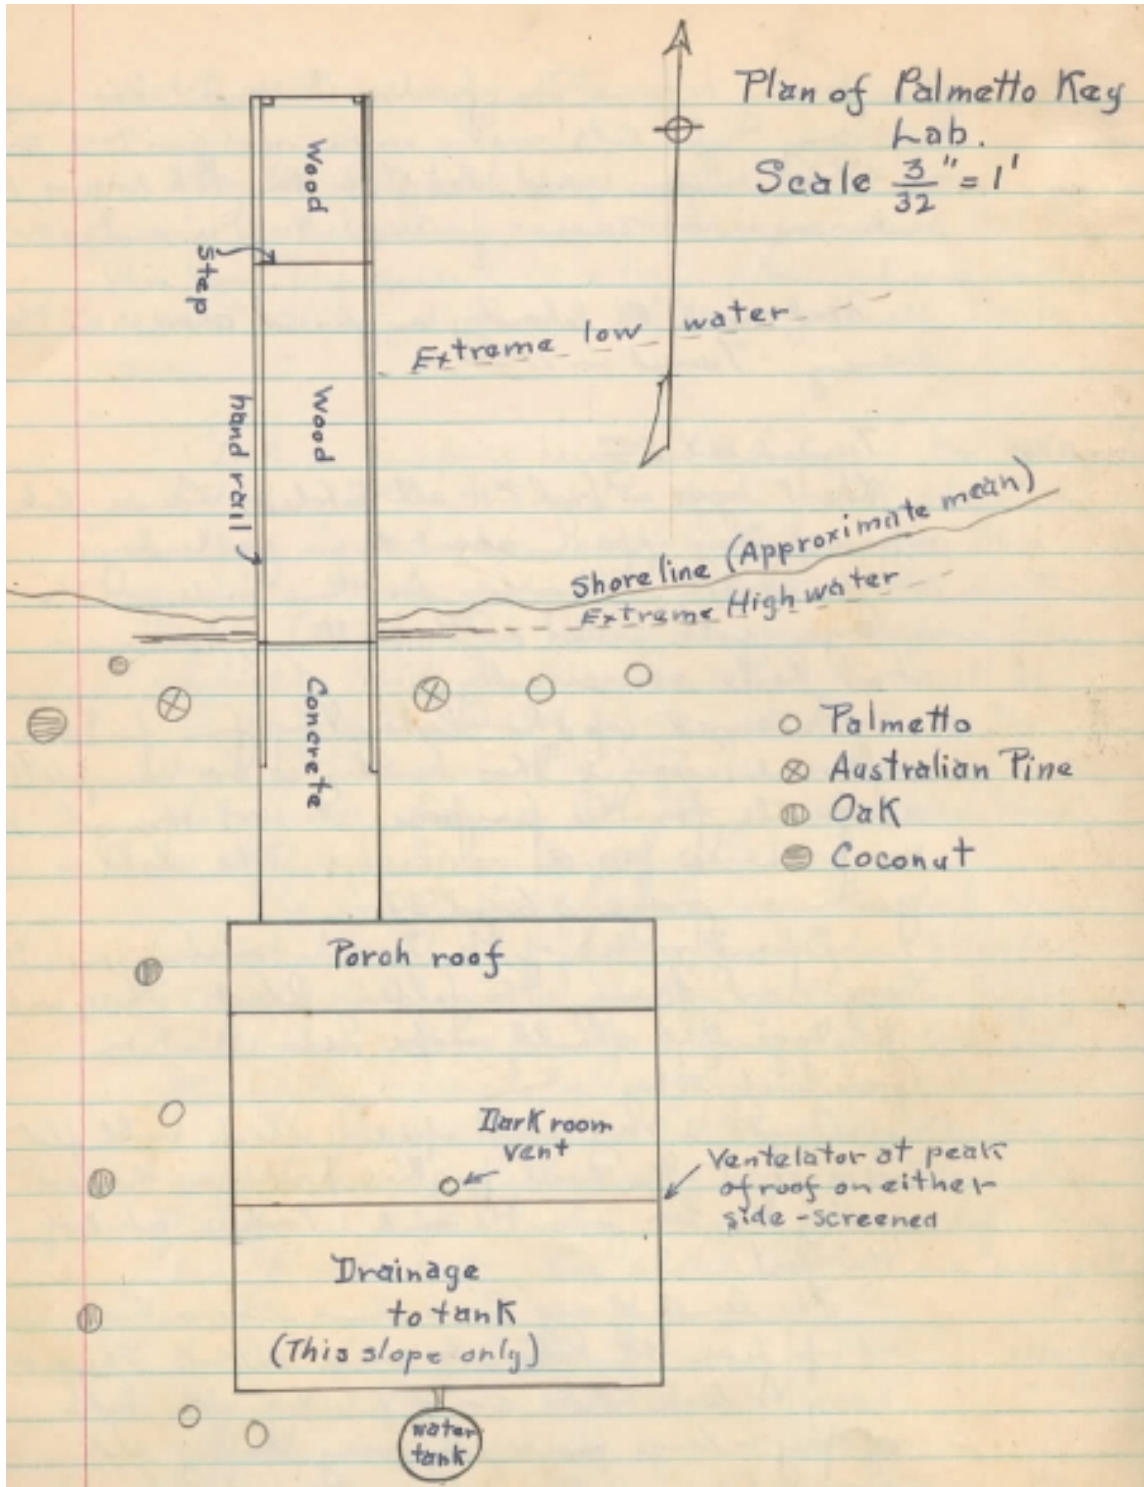 Plan of Palmetto Key
Lab.
Scale 3/32" = 1'
Wood
step
Extreme low water
Wood
hand rail
Shoreline (Approximate mean)
Extreme High water
Concrete
Palmetto
Australian Pine
Oak
Coconut
Porch roof
Dark room
vent
Ventelator at peak
of roof on either
side - screened
Drainage
to tank
(This slope only)
water
tank